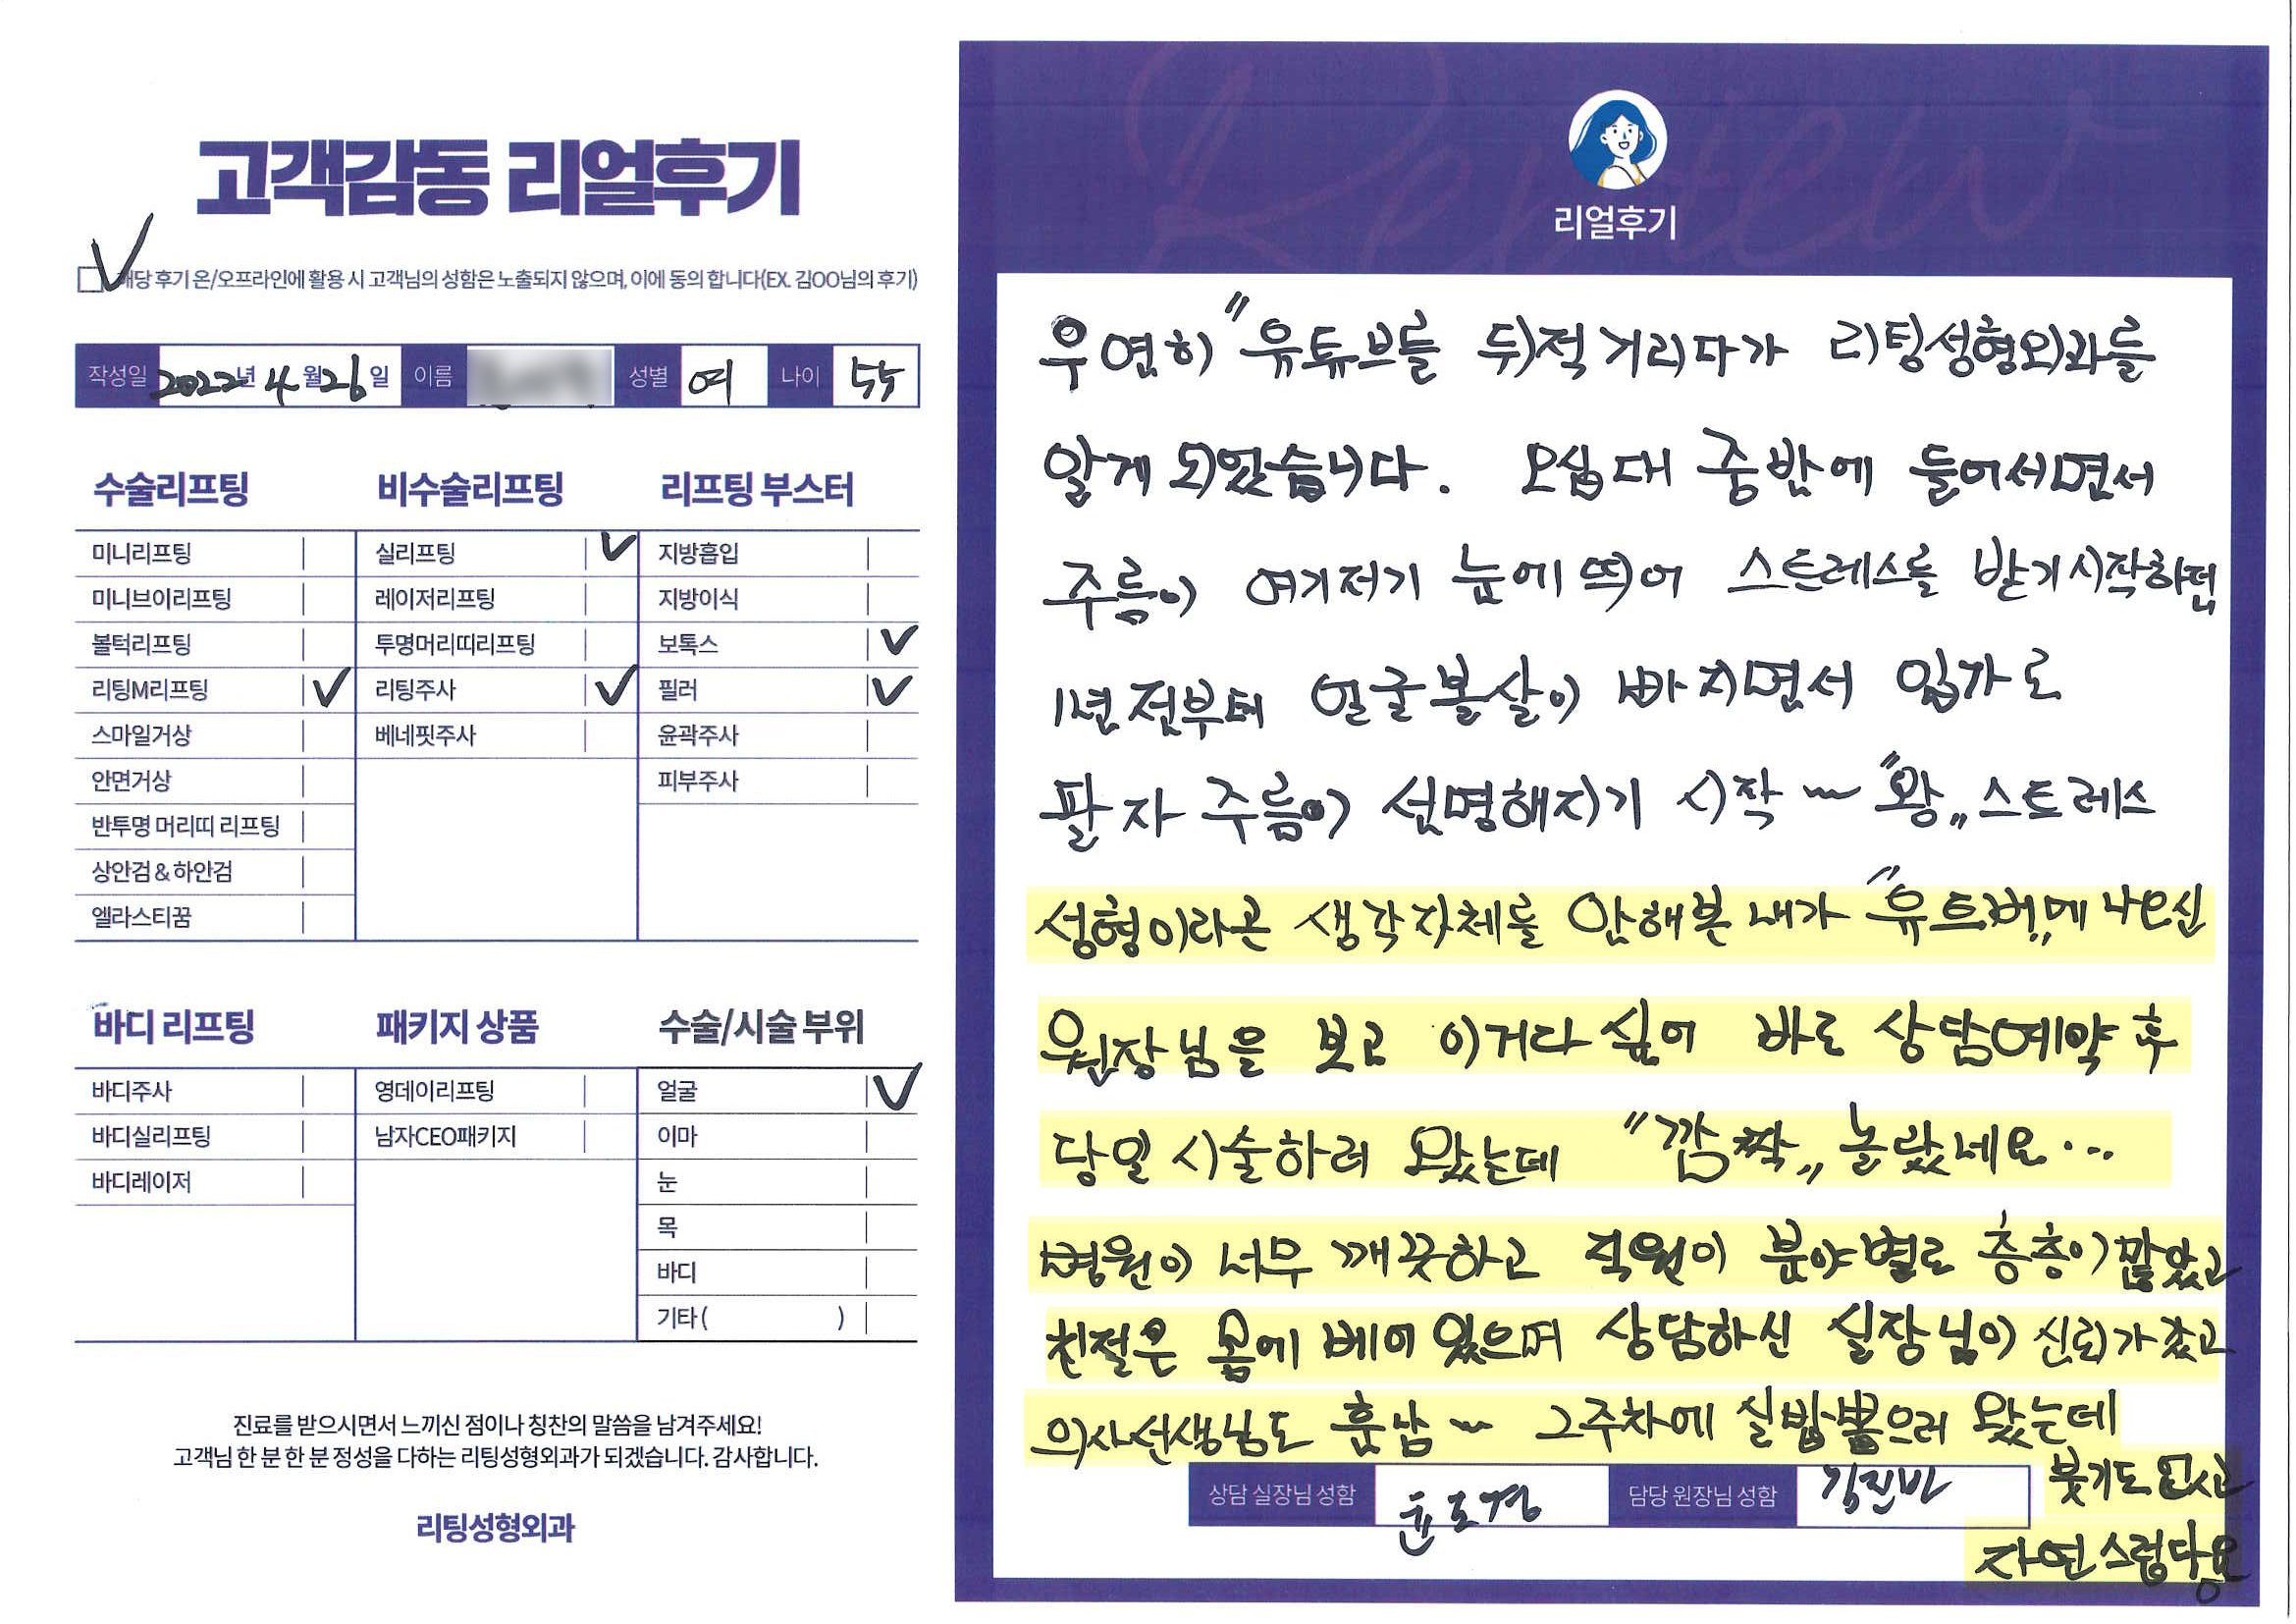 고객감동 리얼후기
해당 후기 온/오프라인에 활용 시 고객님의 성함은 노출되지 않으며, 이에 동의 합니다(EX. 김OO님의 후기)
작성일 2022년 4월 26일 이름 성별 여 나이 55
수술리프팅 비수술리프팅 리프팅 부스터
미니리프팅 실리프팅 ✓ 지방흡입
미니브이리프팅 레이저리프팅 지방이식
볼턱리프팅 투명머리띠리프팅 보톡스 ✓
리팅M리프팅 ✓ 리팅주사 ✓ 필러 ✓
스마일거상 베네핏주사 윤곽주사
안면거상 피부주사
반투명 머리띠 리프팅
상안검 & 하안검
엘라스티꿈
바디 리프팅 패키지 상품 수술/시술 부위
바디주사 영데이리프팅 얼굴 ✓
바디실리프팅 남자CEO패키지 이마
바디레이저 눈
목
바디
기타 ( )
진료를 받으시면서 느끼신 점이나 칭찬의 말씀을 남겨주세요!
고객님 한 분 한 분 정성을 다하는 리팅성형외과가 되겠습니다. 감사합니다.
리팅성형외과
Review
리얼후기
우연히 "유튜브를 뒤적거리다가 리팅성형외과를
알게 되었습니다. 오십대 중반에 들어서면서
주름이 여기저기 눈에 띄어 스트레스를 받기시작하던
1년전부터 얼굴볼살이 빠지면서 입가로
팔자 주름이 선명해지기 시작 ~ "왕" 스트레스
성형이라곤 생각자체를 안해본 내가 "유트버"에 나오신
원장님을 보고 이거다 싶어 바로 상담예약 후
당일 시술하러 왔는데 "깜짝" 놀랐네요...
병원이 너무 깨끗하고 직원이 분야별로 층층이 많았고
친절은 몸에 베여 있으며 상담하신 실장님이 신뢰가 갔고
의사선생님도 훈남 ~ 그주차에 실밥뽑으러 왔는데
붓기도 없고
자연스럽당요
상담 실장님 성함 윤도경 담당 원장님 성함